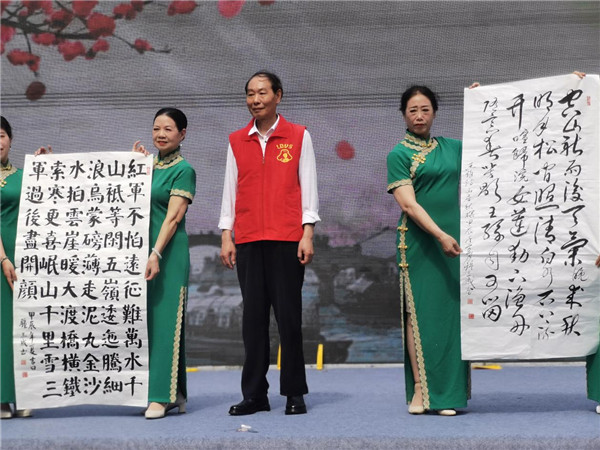 紅軍不怕遠征難萬水千
山祇等閒五嶺逶迤騰細
浪烏蒙磅薄走泥丸金沙
水拍雲崖暖大渡橋橫鐵
索寒更喜岷山千里雪三
軍過後盡開顏
甲辰年夏
空山新雨後天氣晚來秋
明月松間照清泉石上流
竹喧歸浣女蓮動下漁舟
随意春芳歇王孫自可留